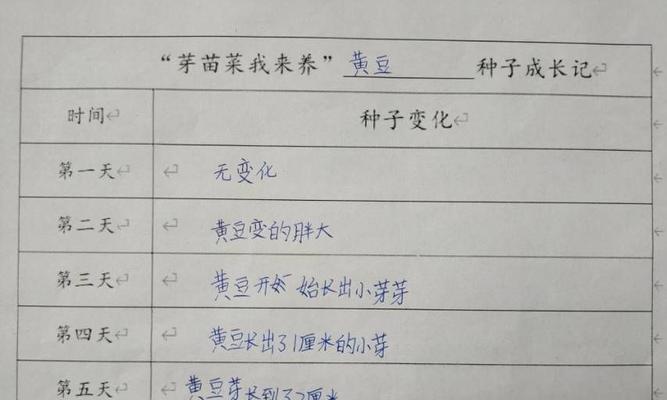 “芽苗菜我来养”黄豆种子成长记
时间 种子变化
第一天 无变化
第二天 黄豆变的胖大
第三天 黄豆开始长出小芽芽
第四天 黄豆长出了1厘米的小芽
第五天 黄豆芽长到了2厘米